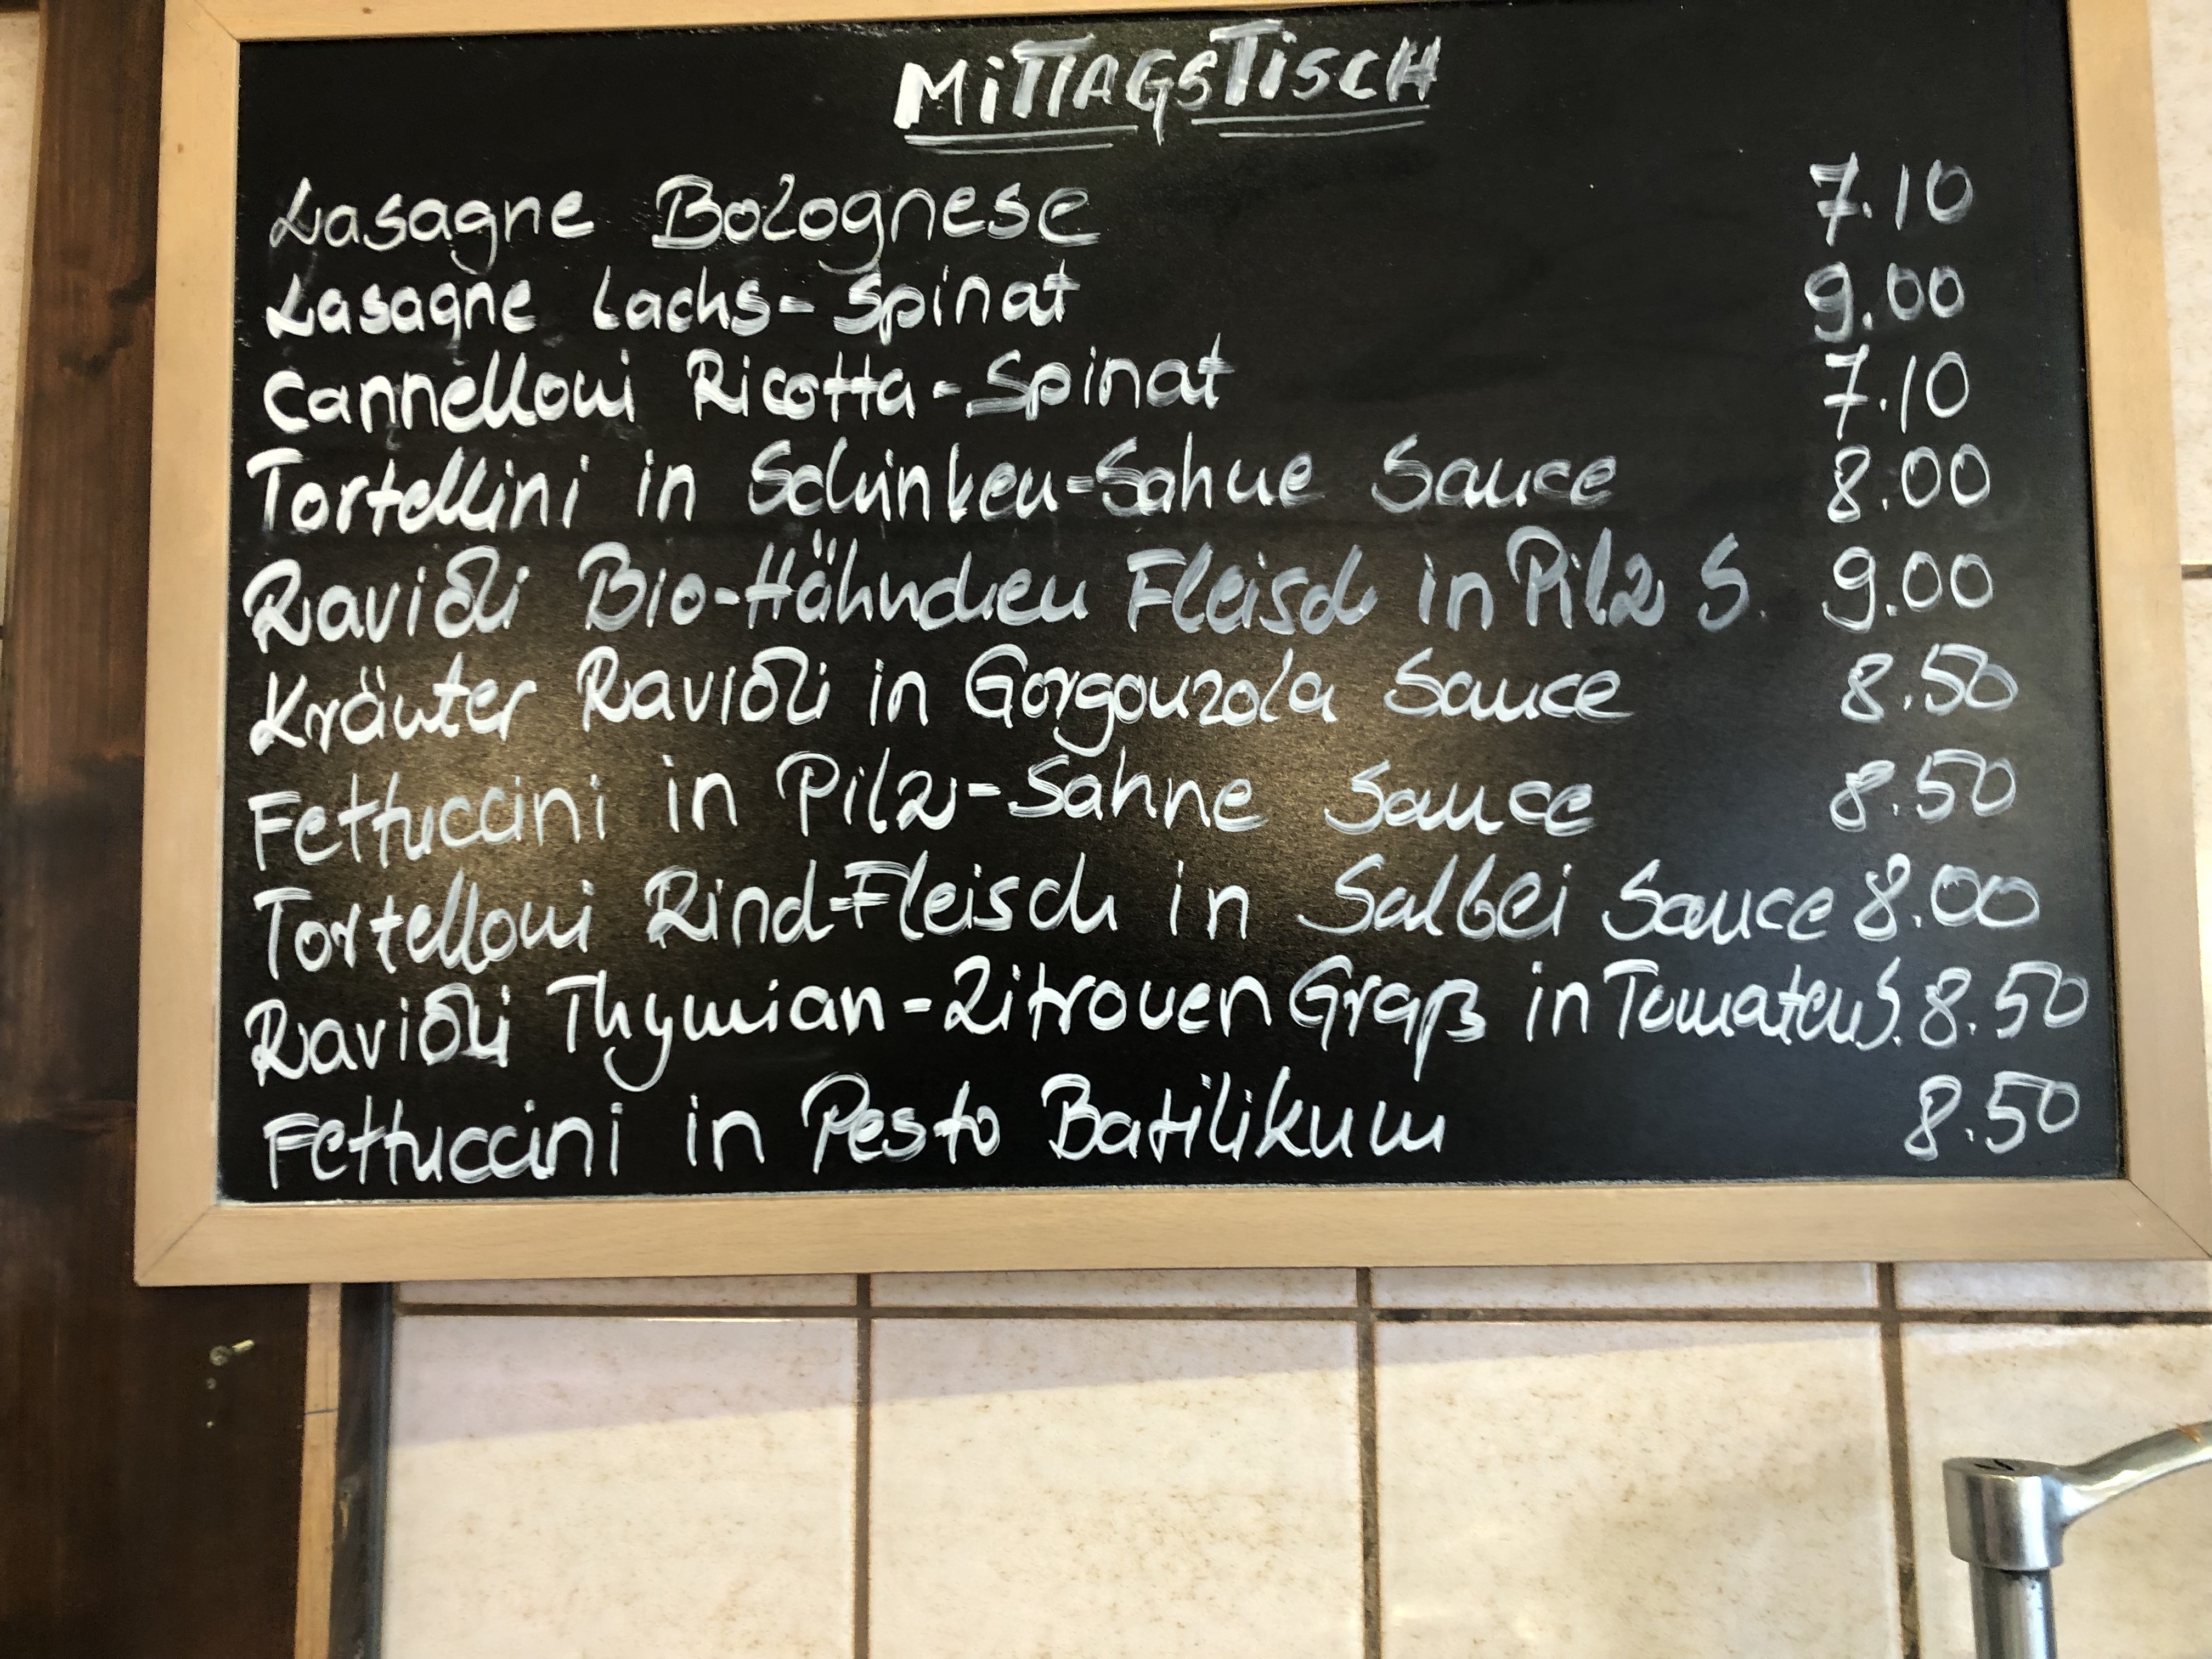 MiTTAGSTiSCH
Lasagne Bolognese 7.10
Lasagne Lachs-Spinat 9.00
Cannelloni Ricotta-Spinat 7.10
Tortellini in Schinken-Sahne Sauce 8.00
Ravioli Bio-Hähnchen Fleisch in Pilz S. 9.00
Kräuter Ravioli in Gorgonzola Sauce 8.50
Fettuccini in Pilz-Sahne Sauce 8.50
Tortelloni Rind-Fleisch in Salbei Sauce 8.00
Ravioli Thymian-Zitronen Graß in Tomaten S. 8.50
Fettuccini in Pesto Basilikum 8.50